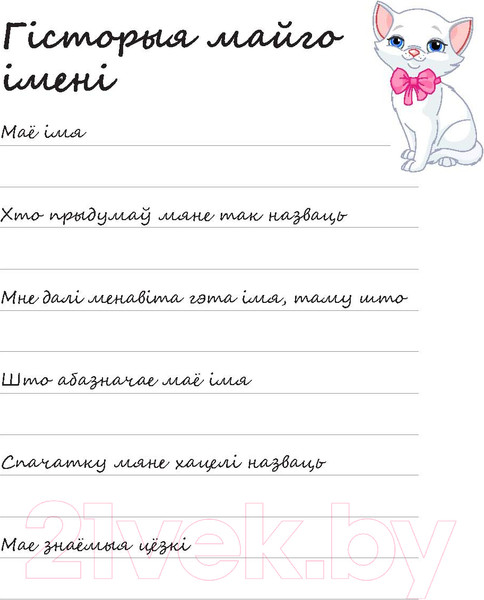 Гісторыя майго
імені
Маё імя
Хто прыдумаў мяне так назваць
Мне далі менавіта гэта імя, таму што
Што абазначае маё імя
Спачатку мяне хацелі назваць
Мае знаёмыя цёзкі
21vek.by